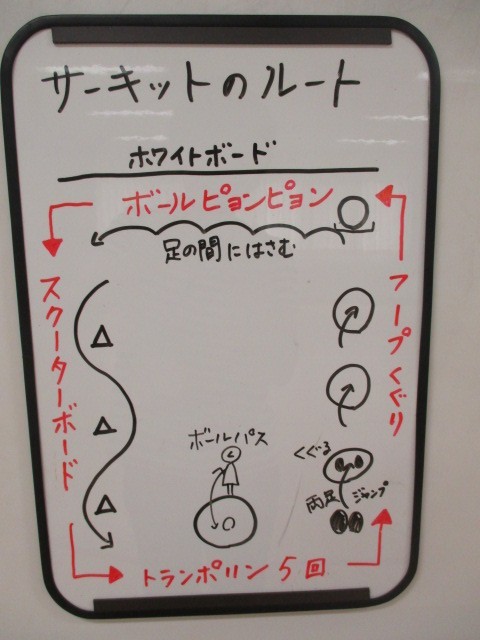 サーキットのルート
ホワイトボード
ボールピョンピョン
足の間にはさむ
スクーターボード
フープくぐり
ボールパス
くぐる
両足ジャンプ
トランポリン5回